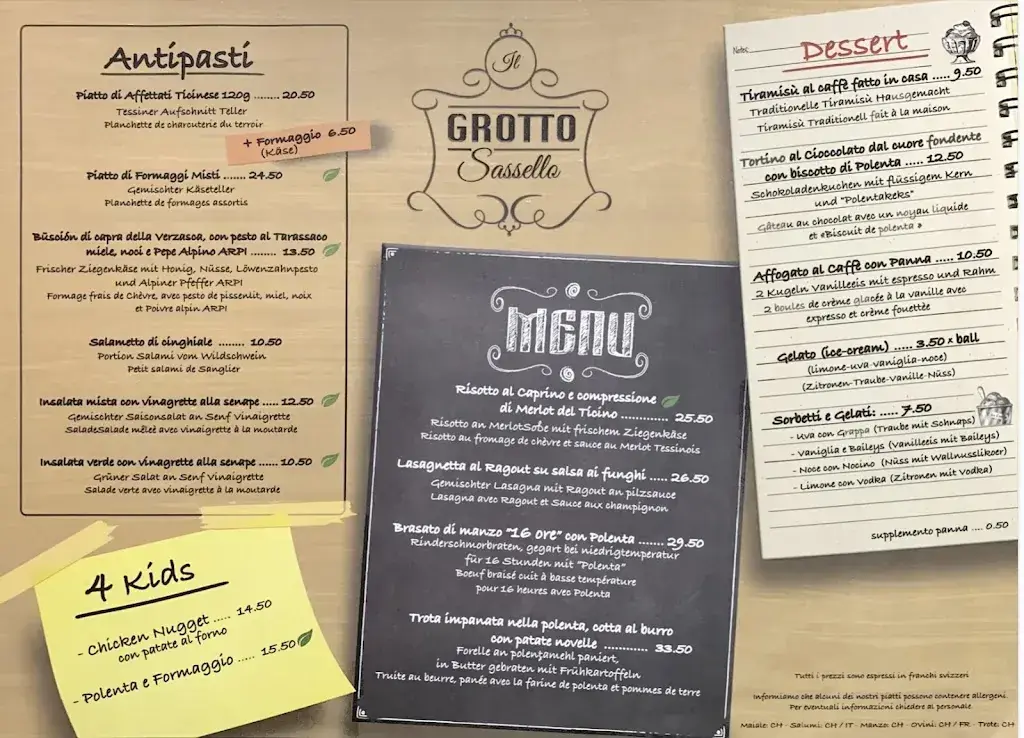 Antipasti
Piatto di Affettati Ticinese 120g ........ 20.50
Tessiner Aufschnitt Teller
Planchette de charcuterie du terroir
+ Formaggio 6.50
(Käse)
Piatto di Formaggi Misti ....... 24.50
Gemischter Käseteller
Planchette de formages assortis
Büsción di capra della Verzasca, con pesto al Tarassaco
miele, noci e Pepe Alpino ARPI ........ 13.50
Frischer Ziegenkäse mit Honig, Nüsse, Löwenzahnpesto
und Alpiner Pfeffer ARPI
Formage frais de Chèvre, avec pesto de pissenlit, miel, noix
et Poivre alpin ARPI
Salametto di cinghiale ........ 10.50
Portion Salami vom Wildschwein
Petit salami de Sanglier
Insalata mista con vinaigrette alla senape ...... 12.50
Gemischter Saisonsalat an Senf Vinaigrette
SaladeSalade mêleè avec vinaigrette à la moutarde
Insalata verde con vinagrette alla senape ...... 10.50
Grüner Salat an Senf Vinaigrette
Salade verte avec vinaigrette à la moutarde
4 Kids
- Chicken Nugget ..... 14.50
con patate al forno
- Polenta e Formaggio ..... 15.50
Il
GROTTO
Sassello
MENU
Risotto al Caprino e compressione
di Merlot del Ticino ............ 25.50
Risotto an MerlotSoße mit frischem Ziegenkäse
Risotto au fromage de chèvre et sauce au Merlot Tessinois
Lasagnetta al Ragout su salsa ai funghi .... 26.50
Gemischter Lasagna mit Ragout an pilzsauce
Lasagna avec Ragout et Sauce aux champignon
Brasato di manzo "16 ore" con Polenta ....... 29.50
Rinderschmorbraten, gegart bei niedrigtemperatur
für 16 Stunden mit "Polenta"
Boeuf braisé cuit à basse température
pour 16 heures avec Polenta
Trota impanata nella polenta, cotta al burro
con patate novelle ............ 33.50
Forelle an polentamehl paniert,
in Butter gebraten mit Frühkartoffeln
Truite au beurre, panée avec la farine de polenta et pommes de terre
Notes:
Dessert
Tiramisù al caffè fatto in casa ..... 9.50
Traditionelle Tiramisù Hausgemacht
Tiramisù Traditionell fait à la maison
Tortino al Cioccolato dal cuore fondente
con biscotto di Polenta ..... 12.50
Schokoladenkuchen mit flüssigem Kern
und "Polentakeks"
Gâteau au chocolat avec un noyau liquide
et «Biscuit de polenta »
Affogato al Caffè con Panna ..... 10.50
2 Kugeln Vanilleeis mit espresso und Rahm
2 boules de crème glacée à la vanille avec
expresso et crème fouettèe
Gelato (ice-cream) ..... 3.50 x ball
(limone-uva-vaniglia-noce)
(Zitronen-Traube-Vanille-Nüss)
Sorbetti e Gelati: ..... 7.50
- Uva con Grappa (Traube mit Schnaps)
- Vaniglia e Baileys (Vanilleeis mit Baileys)
- Noce con Nocino (Nüss mit Wallnusslikoer)
- Limone con Vodka (Zitronen mit Vodka)
supplemento panna .... 0.50
Tutti i prezzi sono espressi in franchi svizzeri
Informiamo che alcuni dei nostri piatti possono contenere allergeni.
Per eventuali informazioni chiedere al personale
Maiale: CH - Salumi: CH / IT - Manzo: CH - Ovini: CH / FR - Trote: CH